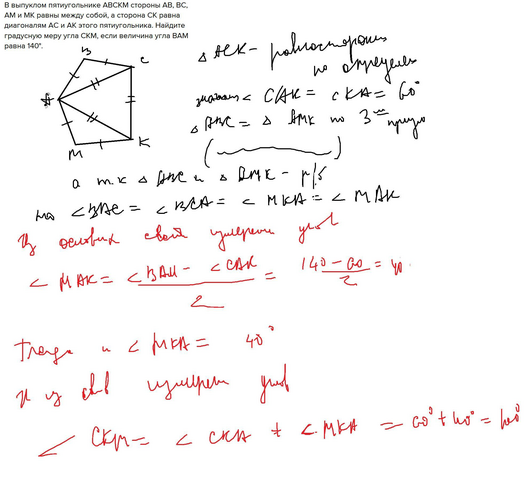 В выпуклом пятиугольнике АВСКМ стороны АВ, ВС,
АМ и МК равны между собой, а сторона СК равна
диагоналям АС и АК этого пятиугольника. Найдите
градусную меру угла СКМ, если величина угла ВАМ
равна 140°.
B
C
A
M
K
△ ACK - равносторонн
по определен
∠ CAK = CKA = 60°
△ ABC = △ AMK по 3
а т.к △ ABC и △ AMK - р/б
то ∠BAC = ∠BCA = ∠ MKA = ∠ MAK
Из основных свойств измерения углов
∠ MAK = ∠BAM - ∠CAK / 2 = 140 - 60 / 2 = 40
Тогда и ∠ MKA = 40°
и из свв измерен углов
∠ CKM = ∠ CKA + ∠ MKA = 60° + 40° = 100°